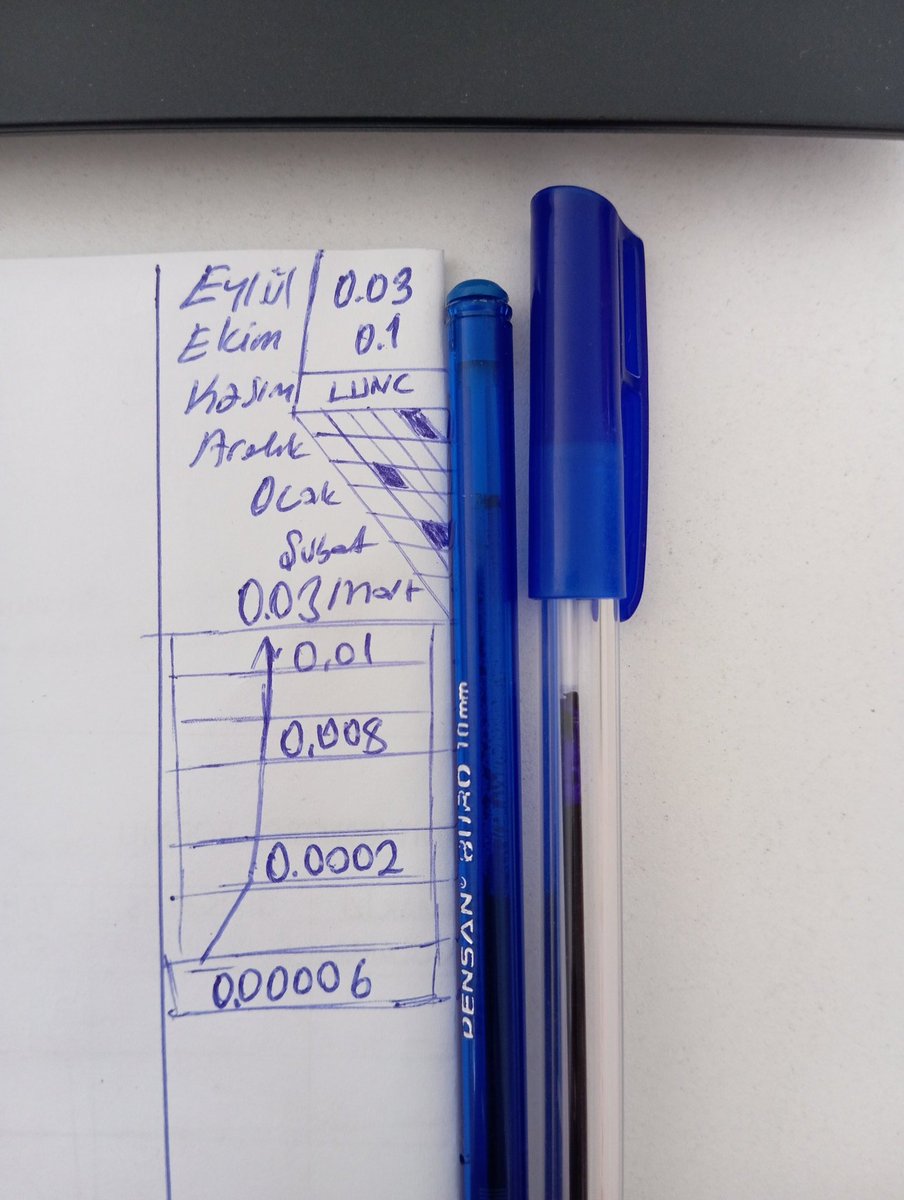 Eylül 0.03
Ekim 0.1
Kasım LUNC
Aralık
Ocak
Şubat
0.03/Mart
0.01
0.008
0.0002
0.00006
PENSAN® BÜRO 1.0mm